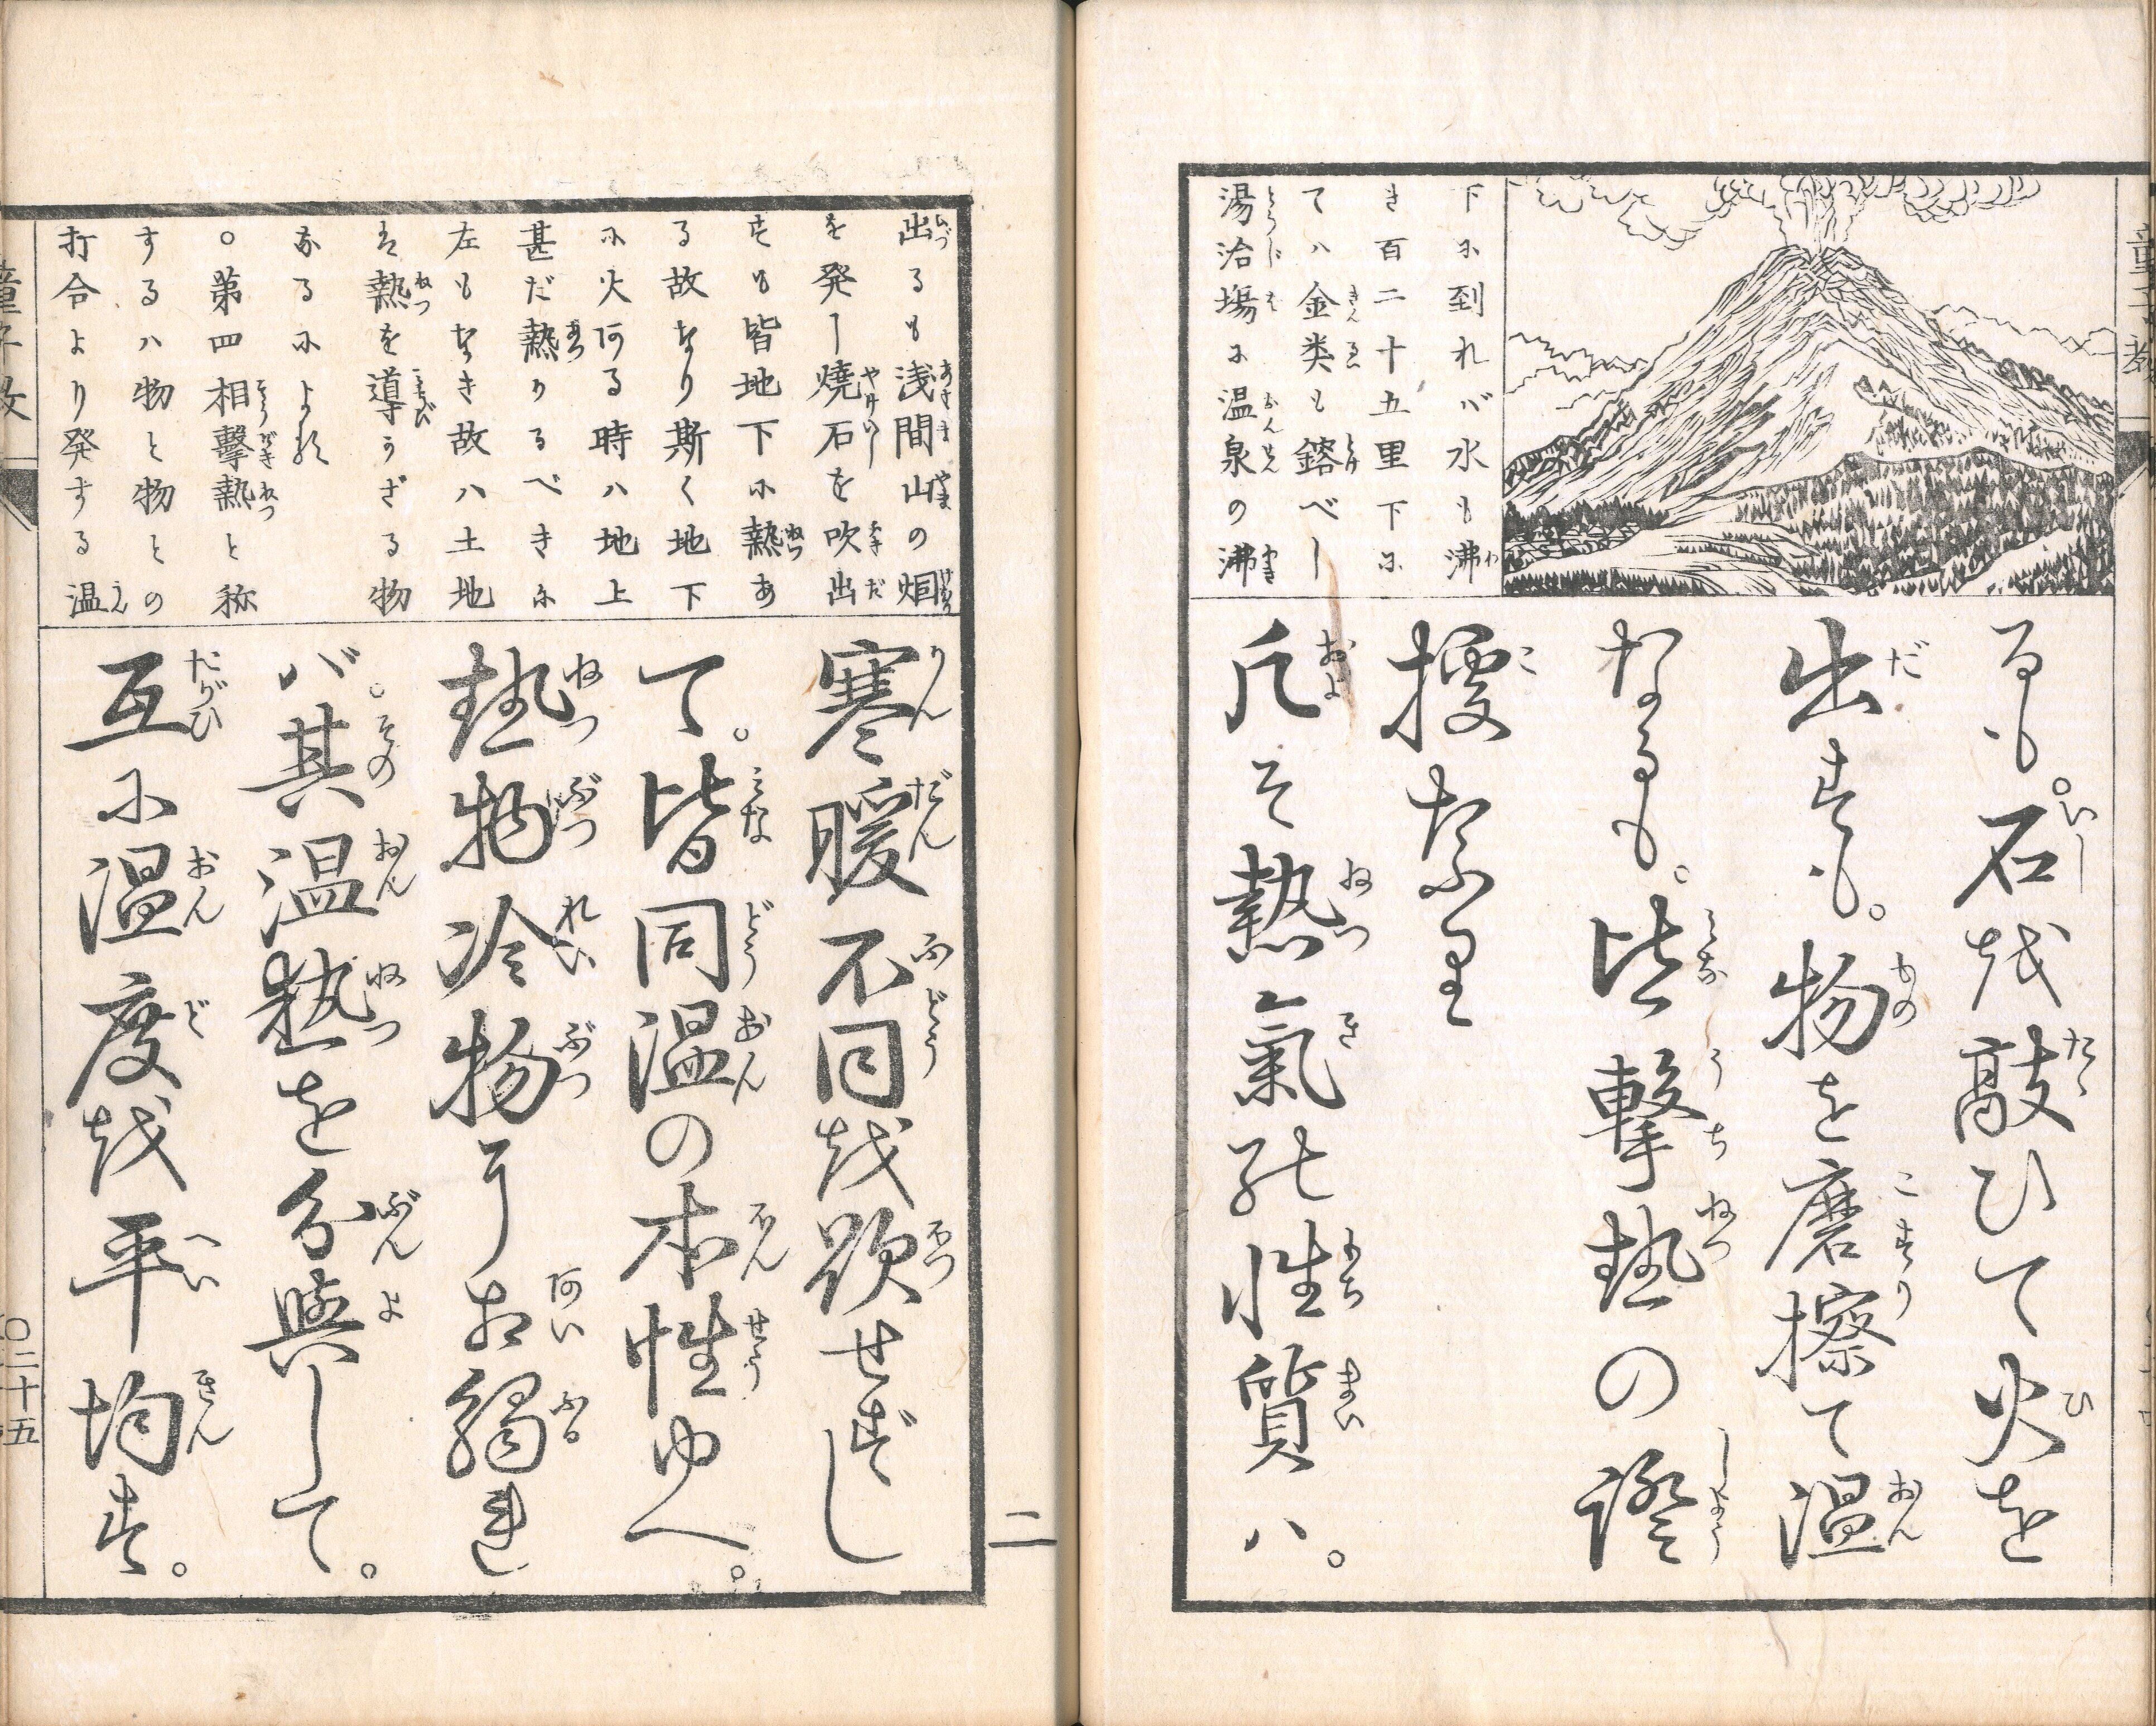 下に到れバ水も沸
き百二十五里下に
てハ金类も鎔べし
湯治塲に温泉の沸
るも。石を敲ひて火を
出すも。物を磨擦て温
なるも。皆撃熱の證
擾なり
凡そ熱氣の性質ハ。
出るも浅間山の烟
を発し燒石を吹出
すも皆地下に熱あ
る故なり斯く地下
に火ある時ハ地上
甚だ熱かるべきに
左もなき故ハ土地
は熱を導かざる物
なるによる
○第四相擊熱と称
するハ物と物との
打合より発する温
寒暖不同を欲せずし
て。皆同温の本性ゆへ。
熱物冷物と相觸れ
バ。其温熱を分與して。
互に温度を平均す。
二
〇二十五